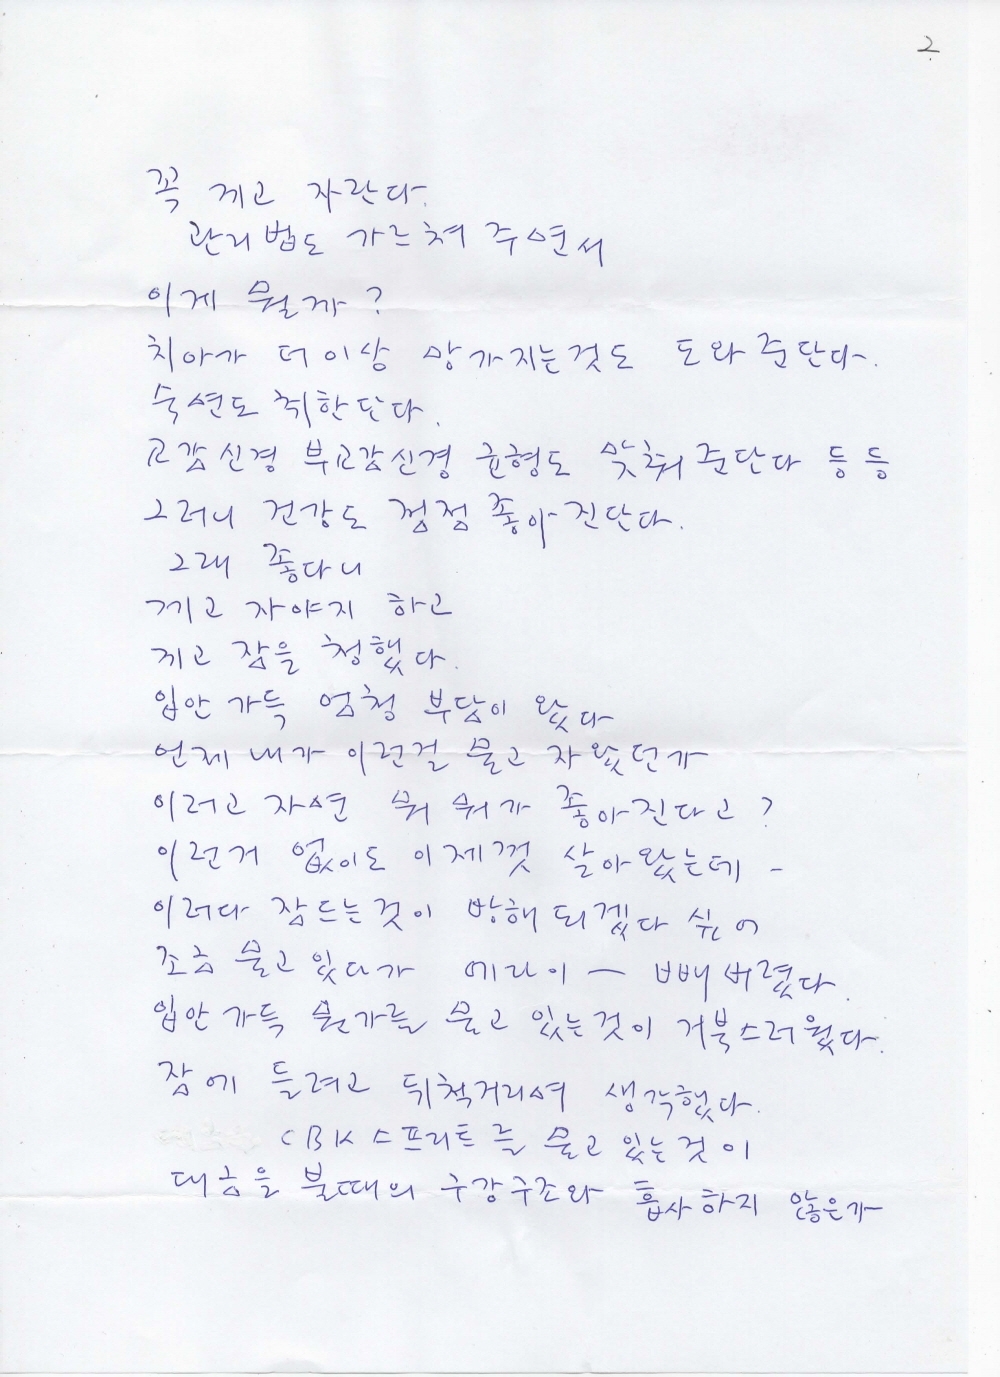 2
꼭 끼고 자란다.
관리법도 가르쳐 주면서
이게 뭘까?
치아가 더이상 망가지는것도 도와준단다.
숙면도 취한단다.
교감신경 부교감신경 균형도 맞춰준단다 등등
그러니 건강도 점점 좋아진단다.
그래 좋다니
끼고 자야지 하고
끼고 잠을 청했다.
입안 가득 엄청 부담이 왔다
언제 내가 이런걸 물고 자왔던가
이러고 자면 뭐 뭐가 좋아진다고?
이런거 없이도 이제껏 살아왔는데 -
이러다 잠드는것이 방해되겠다 싶어
조금 물고 있다가 에라이 — 빼버렸다.
입안 가득 뭔가를 물고 있는것이 거북스러웠다.
잠에 들려고 뒤척거리며 생각했다.
CBK 스프린트를 물고 있는것이
대금을 불때의 구강구조와 흡사하지 않은가